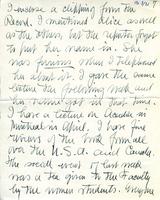 I enclose a clipping from the
Record. I mentioned Alice as well
as the others, but the reporter forgot
to put her name in. She
was furious when I telephoned
her about it. I gave the same
lecture the following week and
her name got in that time.
I have a lecture on Acadia in
Montreal in April. I have fine
reviews of the book from all
over the U.S.A. and Canada.
The social event of last week
was a tea given to the Faculty
by the women students.